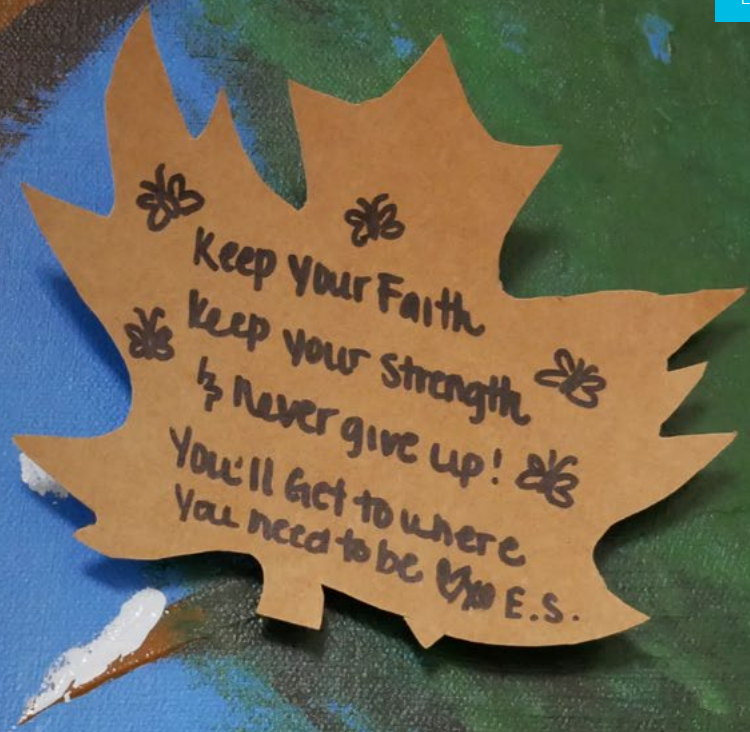 Keep your Faith
Keep your strength
& never give up!
You'll Get to where
You need to be
E.S.